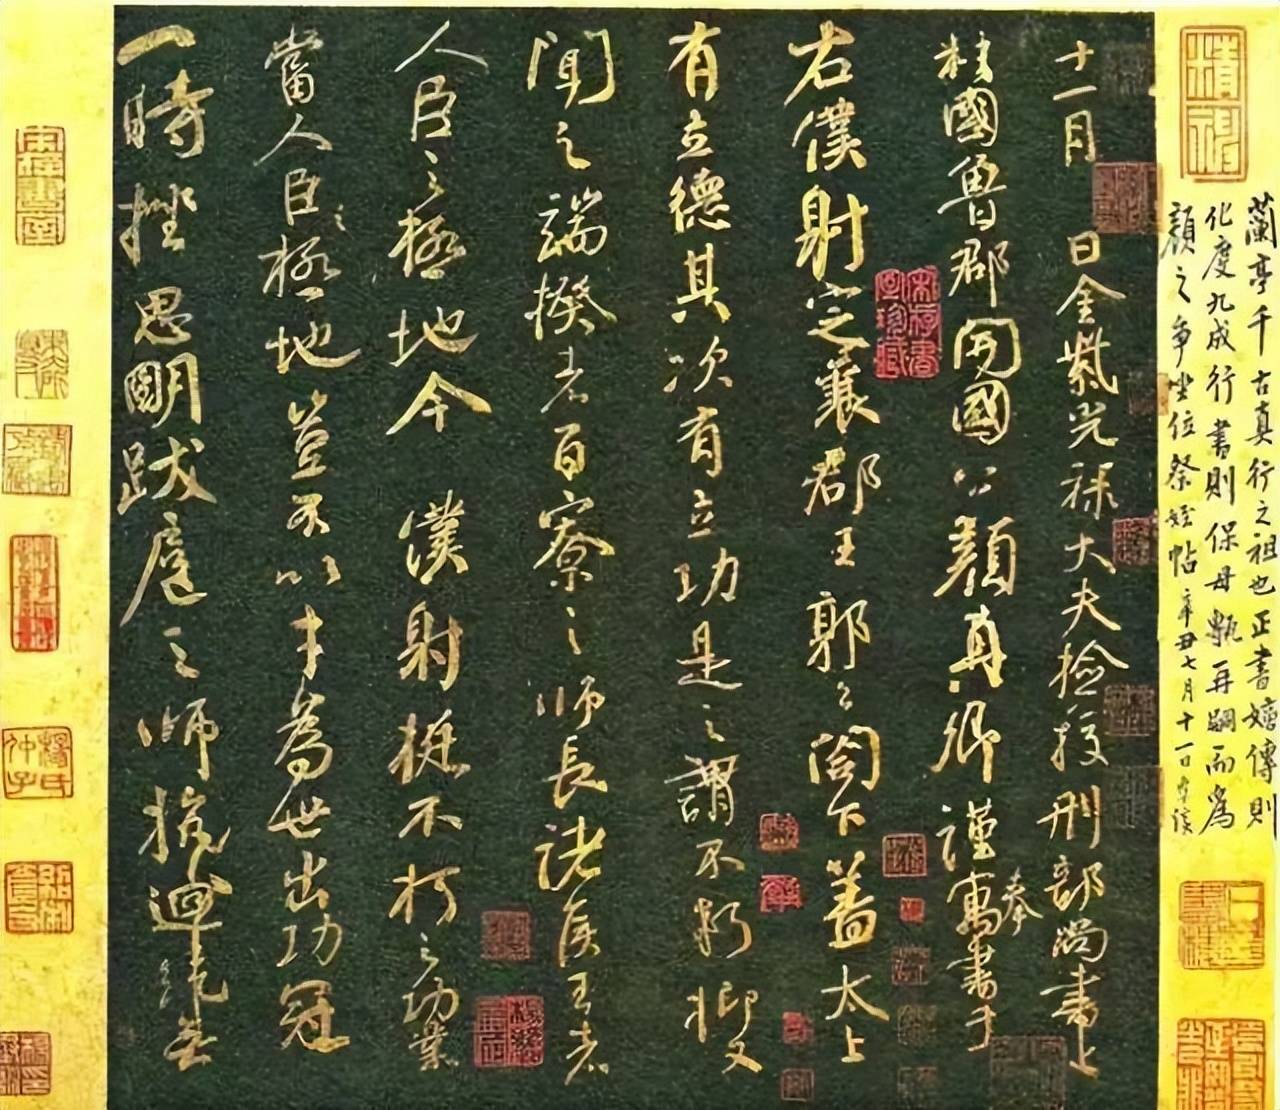 蘭亭千古真行之祖也正書嫡傳則
化度九成行書則保母甎再嗣而為
顏之爭坐位祭姪帖辛丑七月十一日
十一月 日金紫光祿大夫檢校刑部尚書上
柱國魯郡開國公顏真卿謹奉寓書于
右僕射定襄郡王郭公閤下蓋太上
有立德其次有立功是之謂不朽抑又
聞之端揆者百寮之師長諸侯王者
人臣之極地今 僕射挺不朽之功業
當人臣之極地豈不以才為世出功冠
一時挫思明跋扈之師抗迴紇無